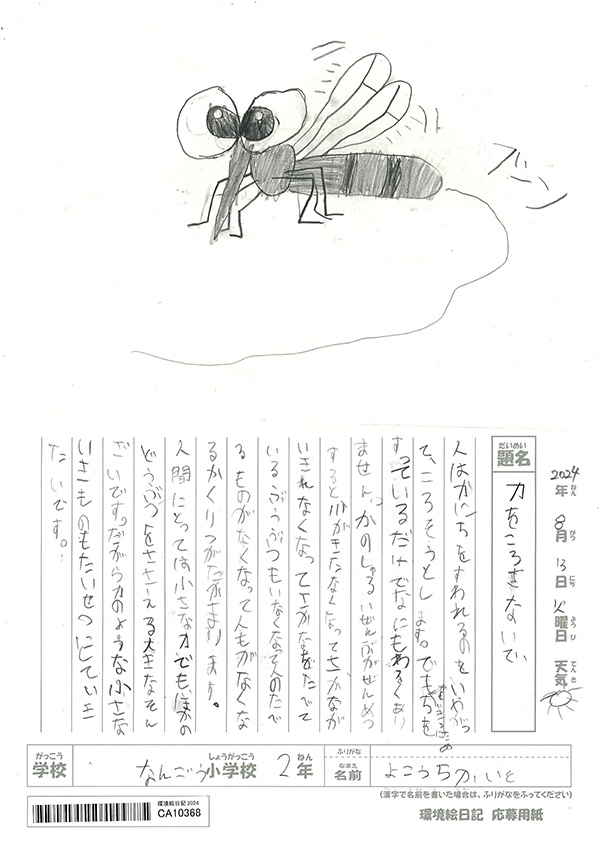 ブーン
2024年 8月 13日 火曜日 天気
ねん がつ にち ようび てんき
だいめい
題名
カをころさないで
人はかにちをすわれるのをいやがっ
て、ころそうとします。でもちを
すっているだけでなにもわるくあり
ません。かのしゅるいぜんぶがぜんめつ
すると水がきたなくなってさかなが
いきれなくなってさかなをたべて
いるどうぶつもいなくなってそのたべ
るものがなくなって人もがなくな
るかくりつがたかまります。
人間にとっては小さなカでもほかの
どうぶつをささえる大きなそん
ざいです。だからカのような小さな
いきものもたいせつにしていき
たいです。
がっこう しょうがっこう ねん
学校 なんごう小学校 2年
ふりがな
なまえ
名前 よこうちかいと
(漢字で名前を書いた場合は、ふりがなをふってください)
環境絵日記 応募用紙
環境絵日記 2024
CA10368